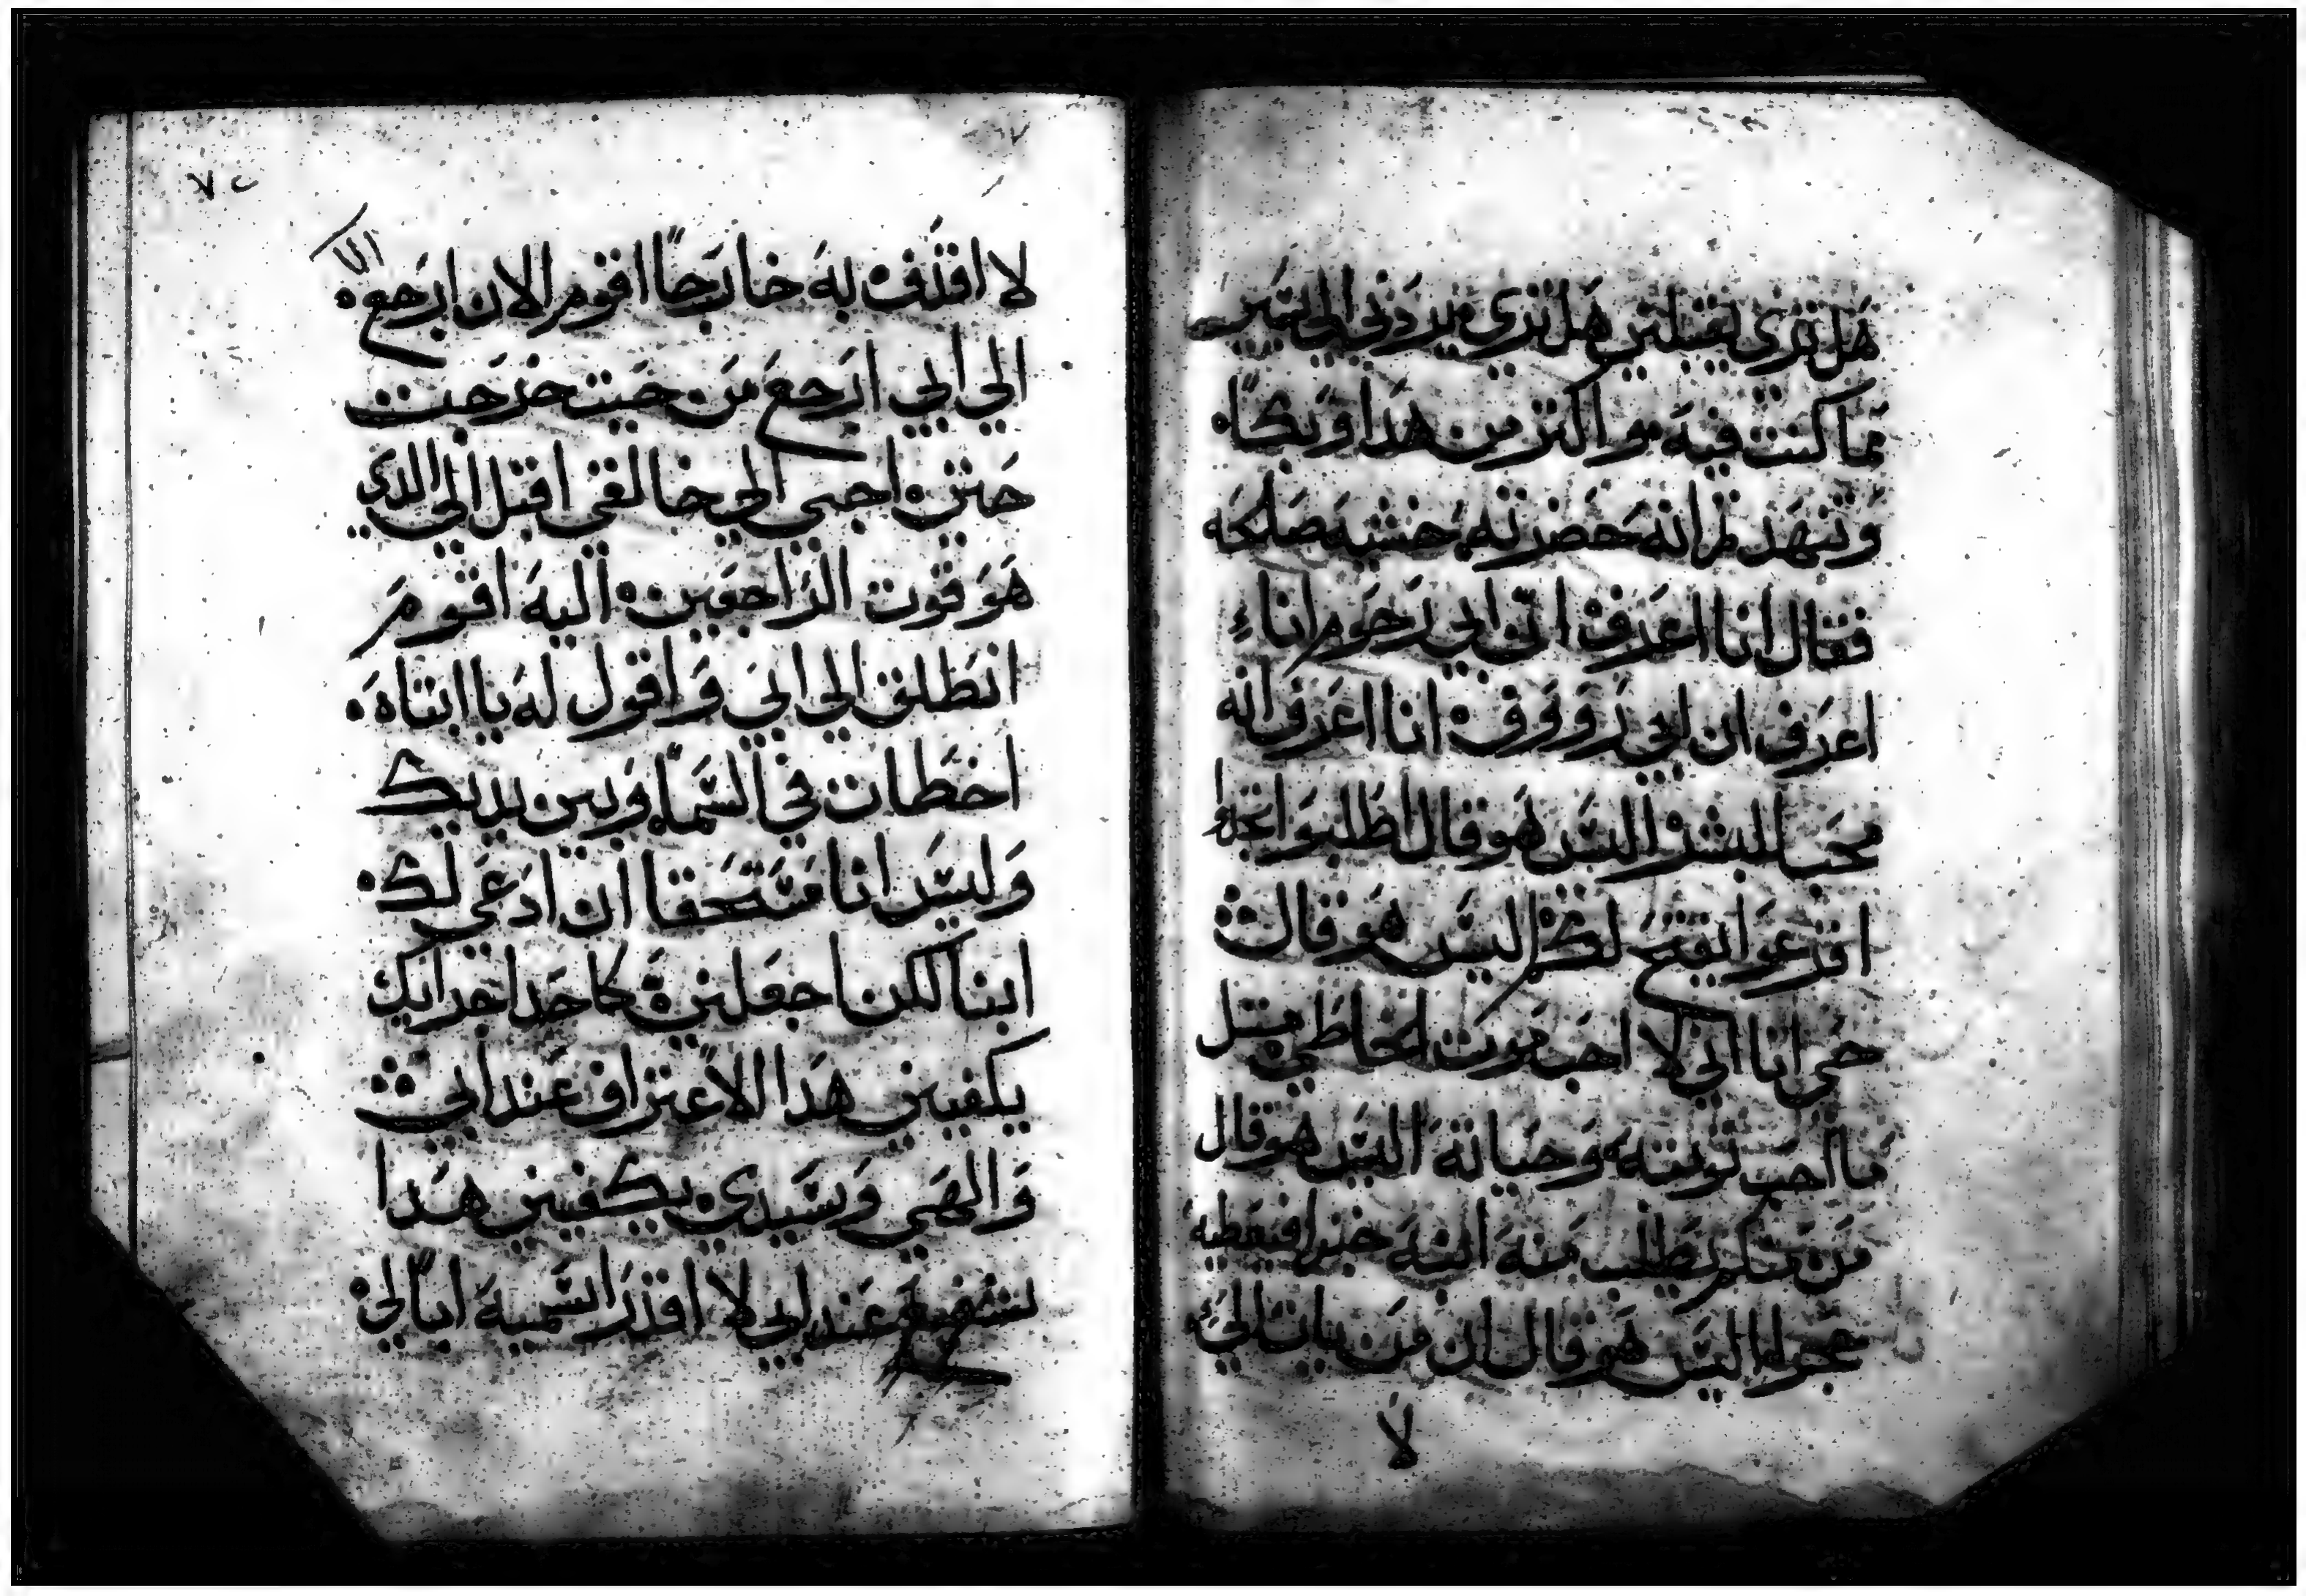 هل ترى يقبلني هل ترى يردني الى بيتي
مما كنت فيه هو اكتر من هدا وبكاً
وتنهد ثم انه حضرته خشيه صالحه
فقال انا اعرف ان ابي رحوم انا
اعرف ان ابي رووف انا اعرف انه
محب للبشر اليس هو قال اطلبوا تجدوا
اقرعوا يفتح لكم اليس هو قال
حي انا اني لا احب موت الخاطي متل
ما احب توبته وحياته اليس هو قال
من منكم يطلب منه ابنه خبزا فيعطيه
حجرا اليس هو قال ان من يات الي
لا
٧٢
لا اقدف به خارجاً اقوم الان ارجع
الي ابي ارجع من حيت خرجت
حتي اجي الي خالقي اقبل الي الدي
هو قوت الراجعين اليه اقوم
انطلق الي ابي واقول له يا ابتاه
اخطات في السما وبين يديك
وليس انا مستحقا ان ادعي لك
ابنا لكن اجعلني كاحد اجرايك
يكفيني هدا الاعتراف عند ابي
والهي وسيدي يكفيني هدا
عند ابي لا اقدر اسميه اباً لي